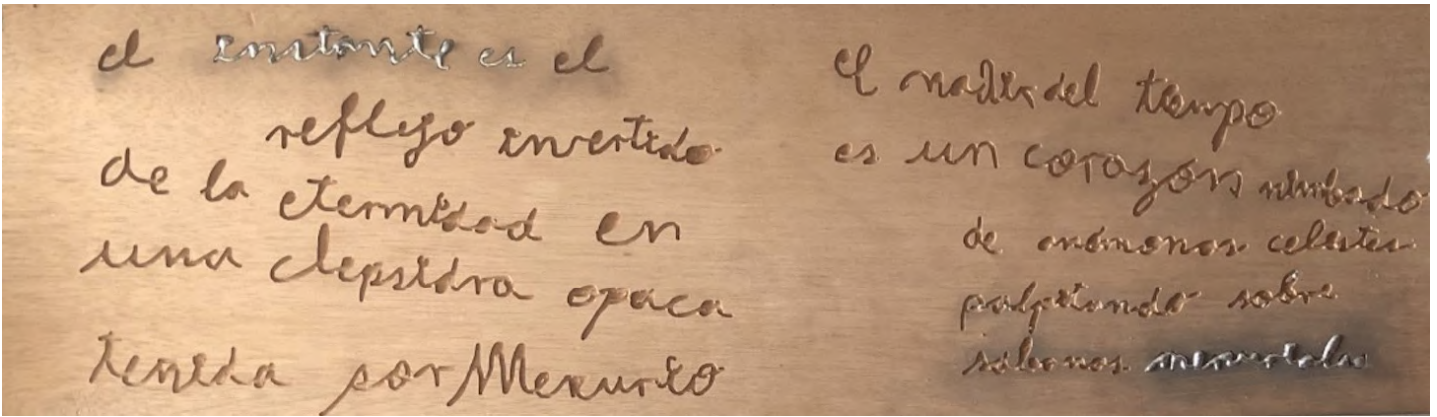 el instante es el
reflejo invertido
de la eternidad en
una clepsidra opaca
tenida por Mercurio
el nadir del tiempo
es un corazón nimbado
de anémonas celestes
palpitando sobre
sábanas